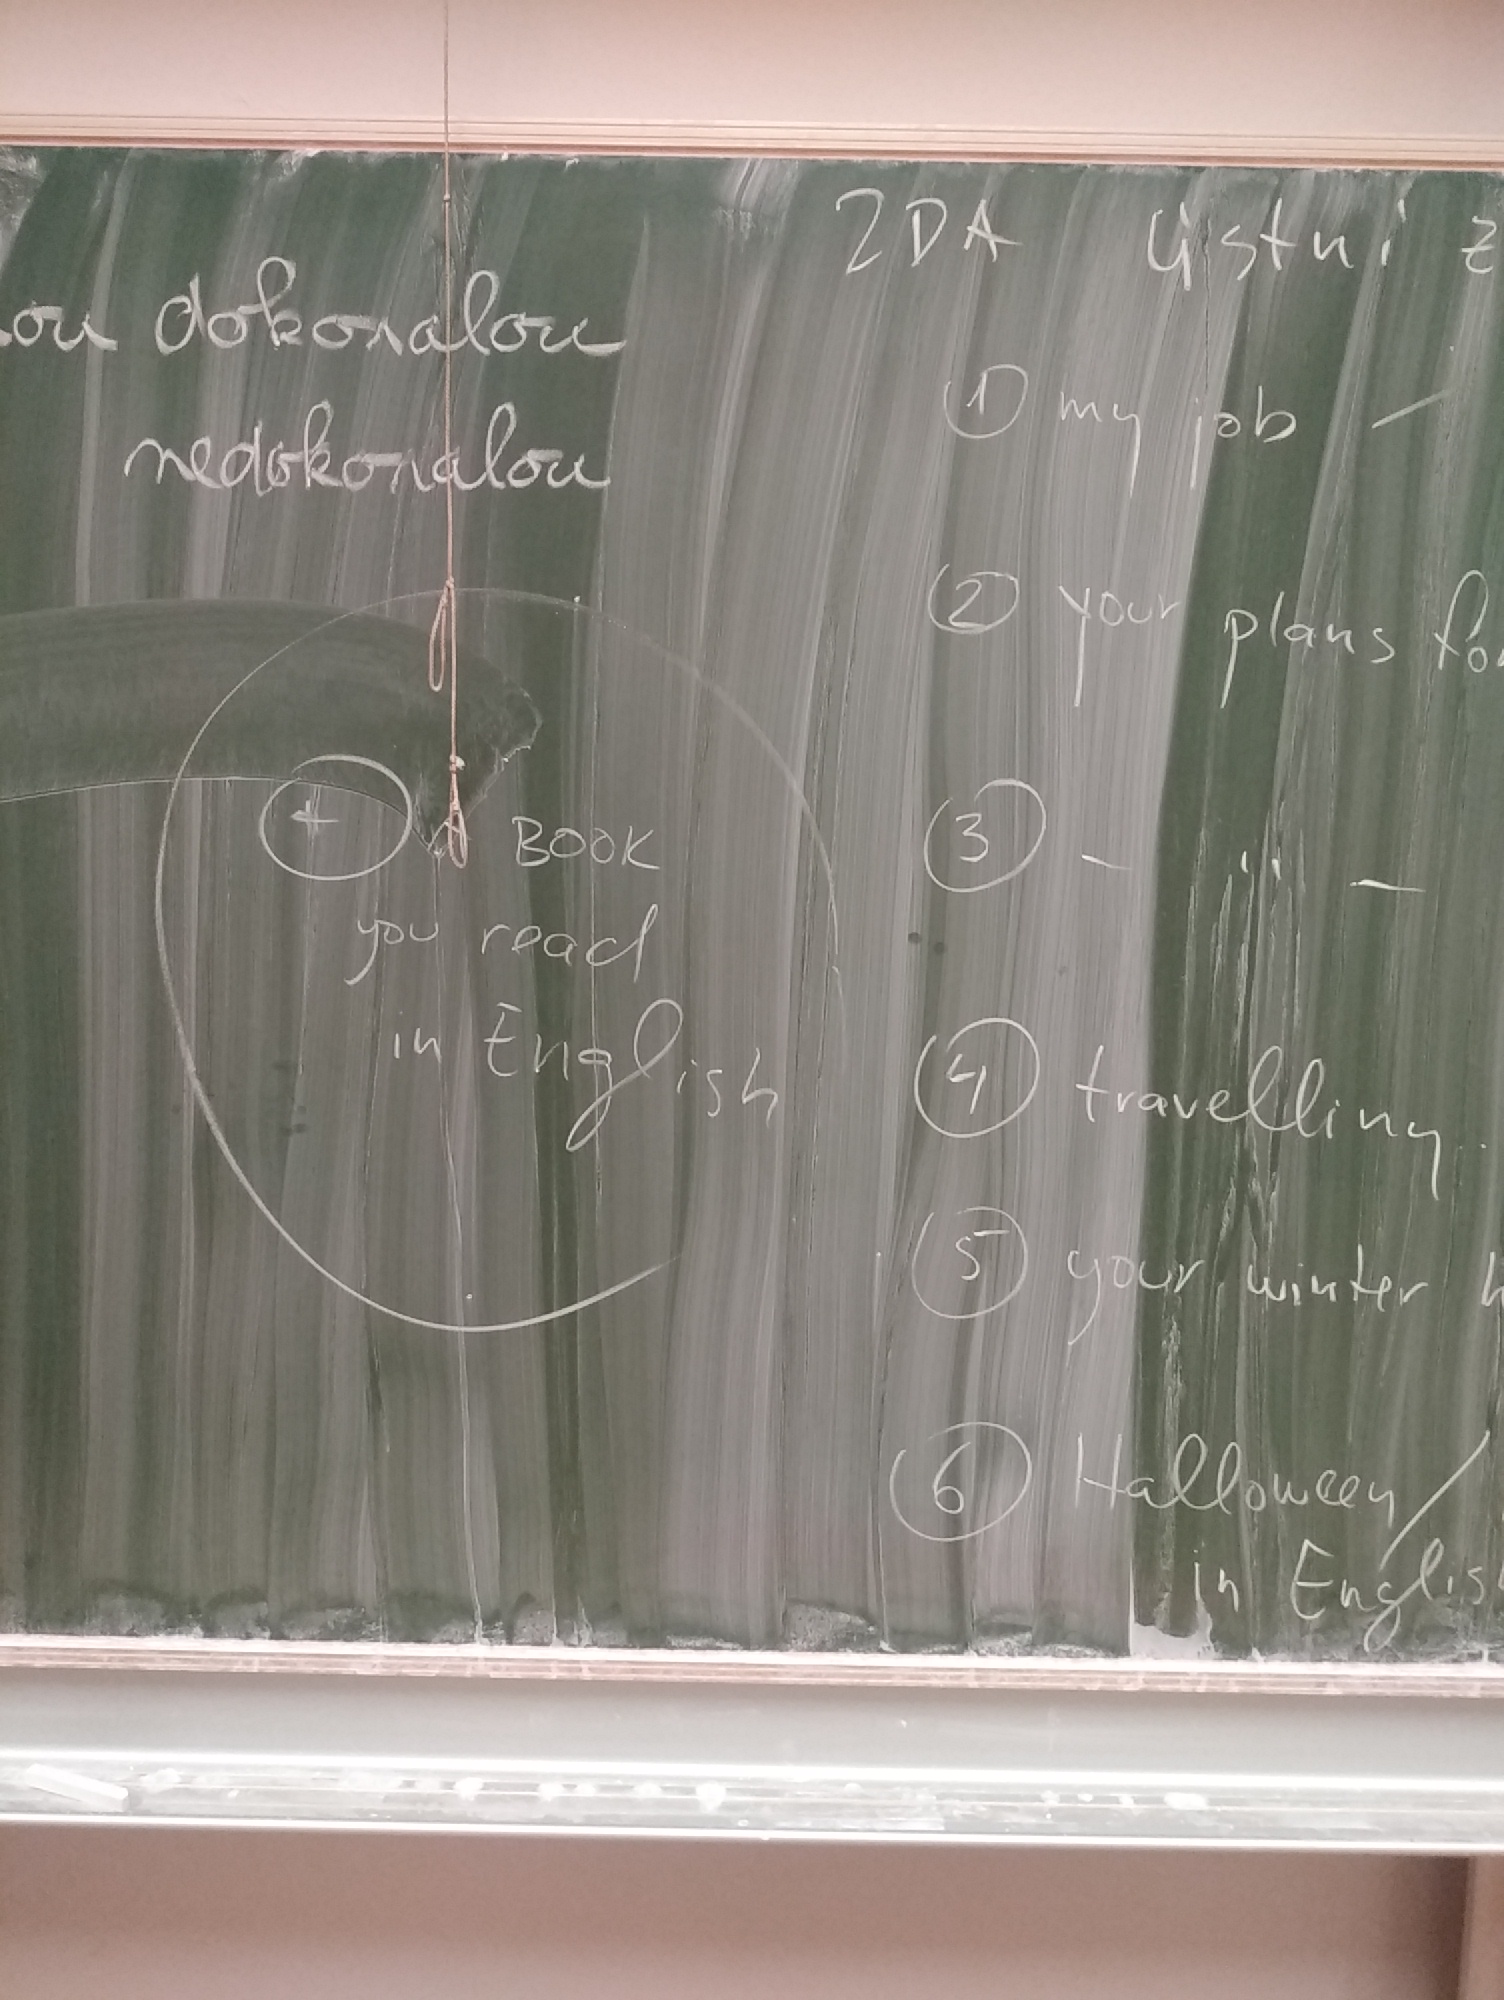 dokonalou
nedokonalou
+ A BOOK
you read
in English
2DA ústní
1 my job –
2 your plans for
3 – " –
4 travelling
5 your winter
6 Halloween /
in English